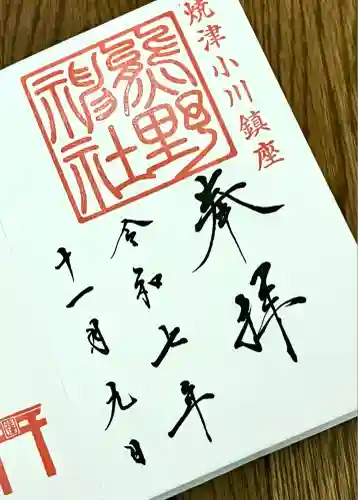 焼津小川鎮座
奉拝
熊野神社
令和七年
十一月九日